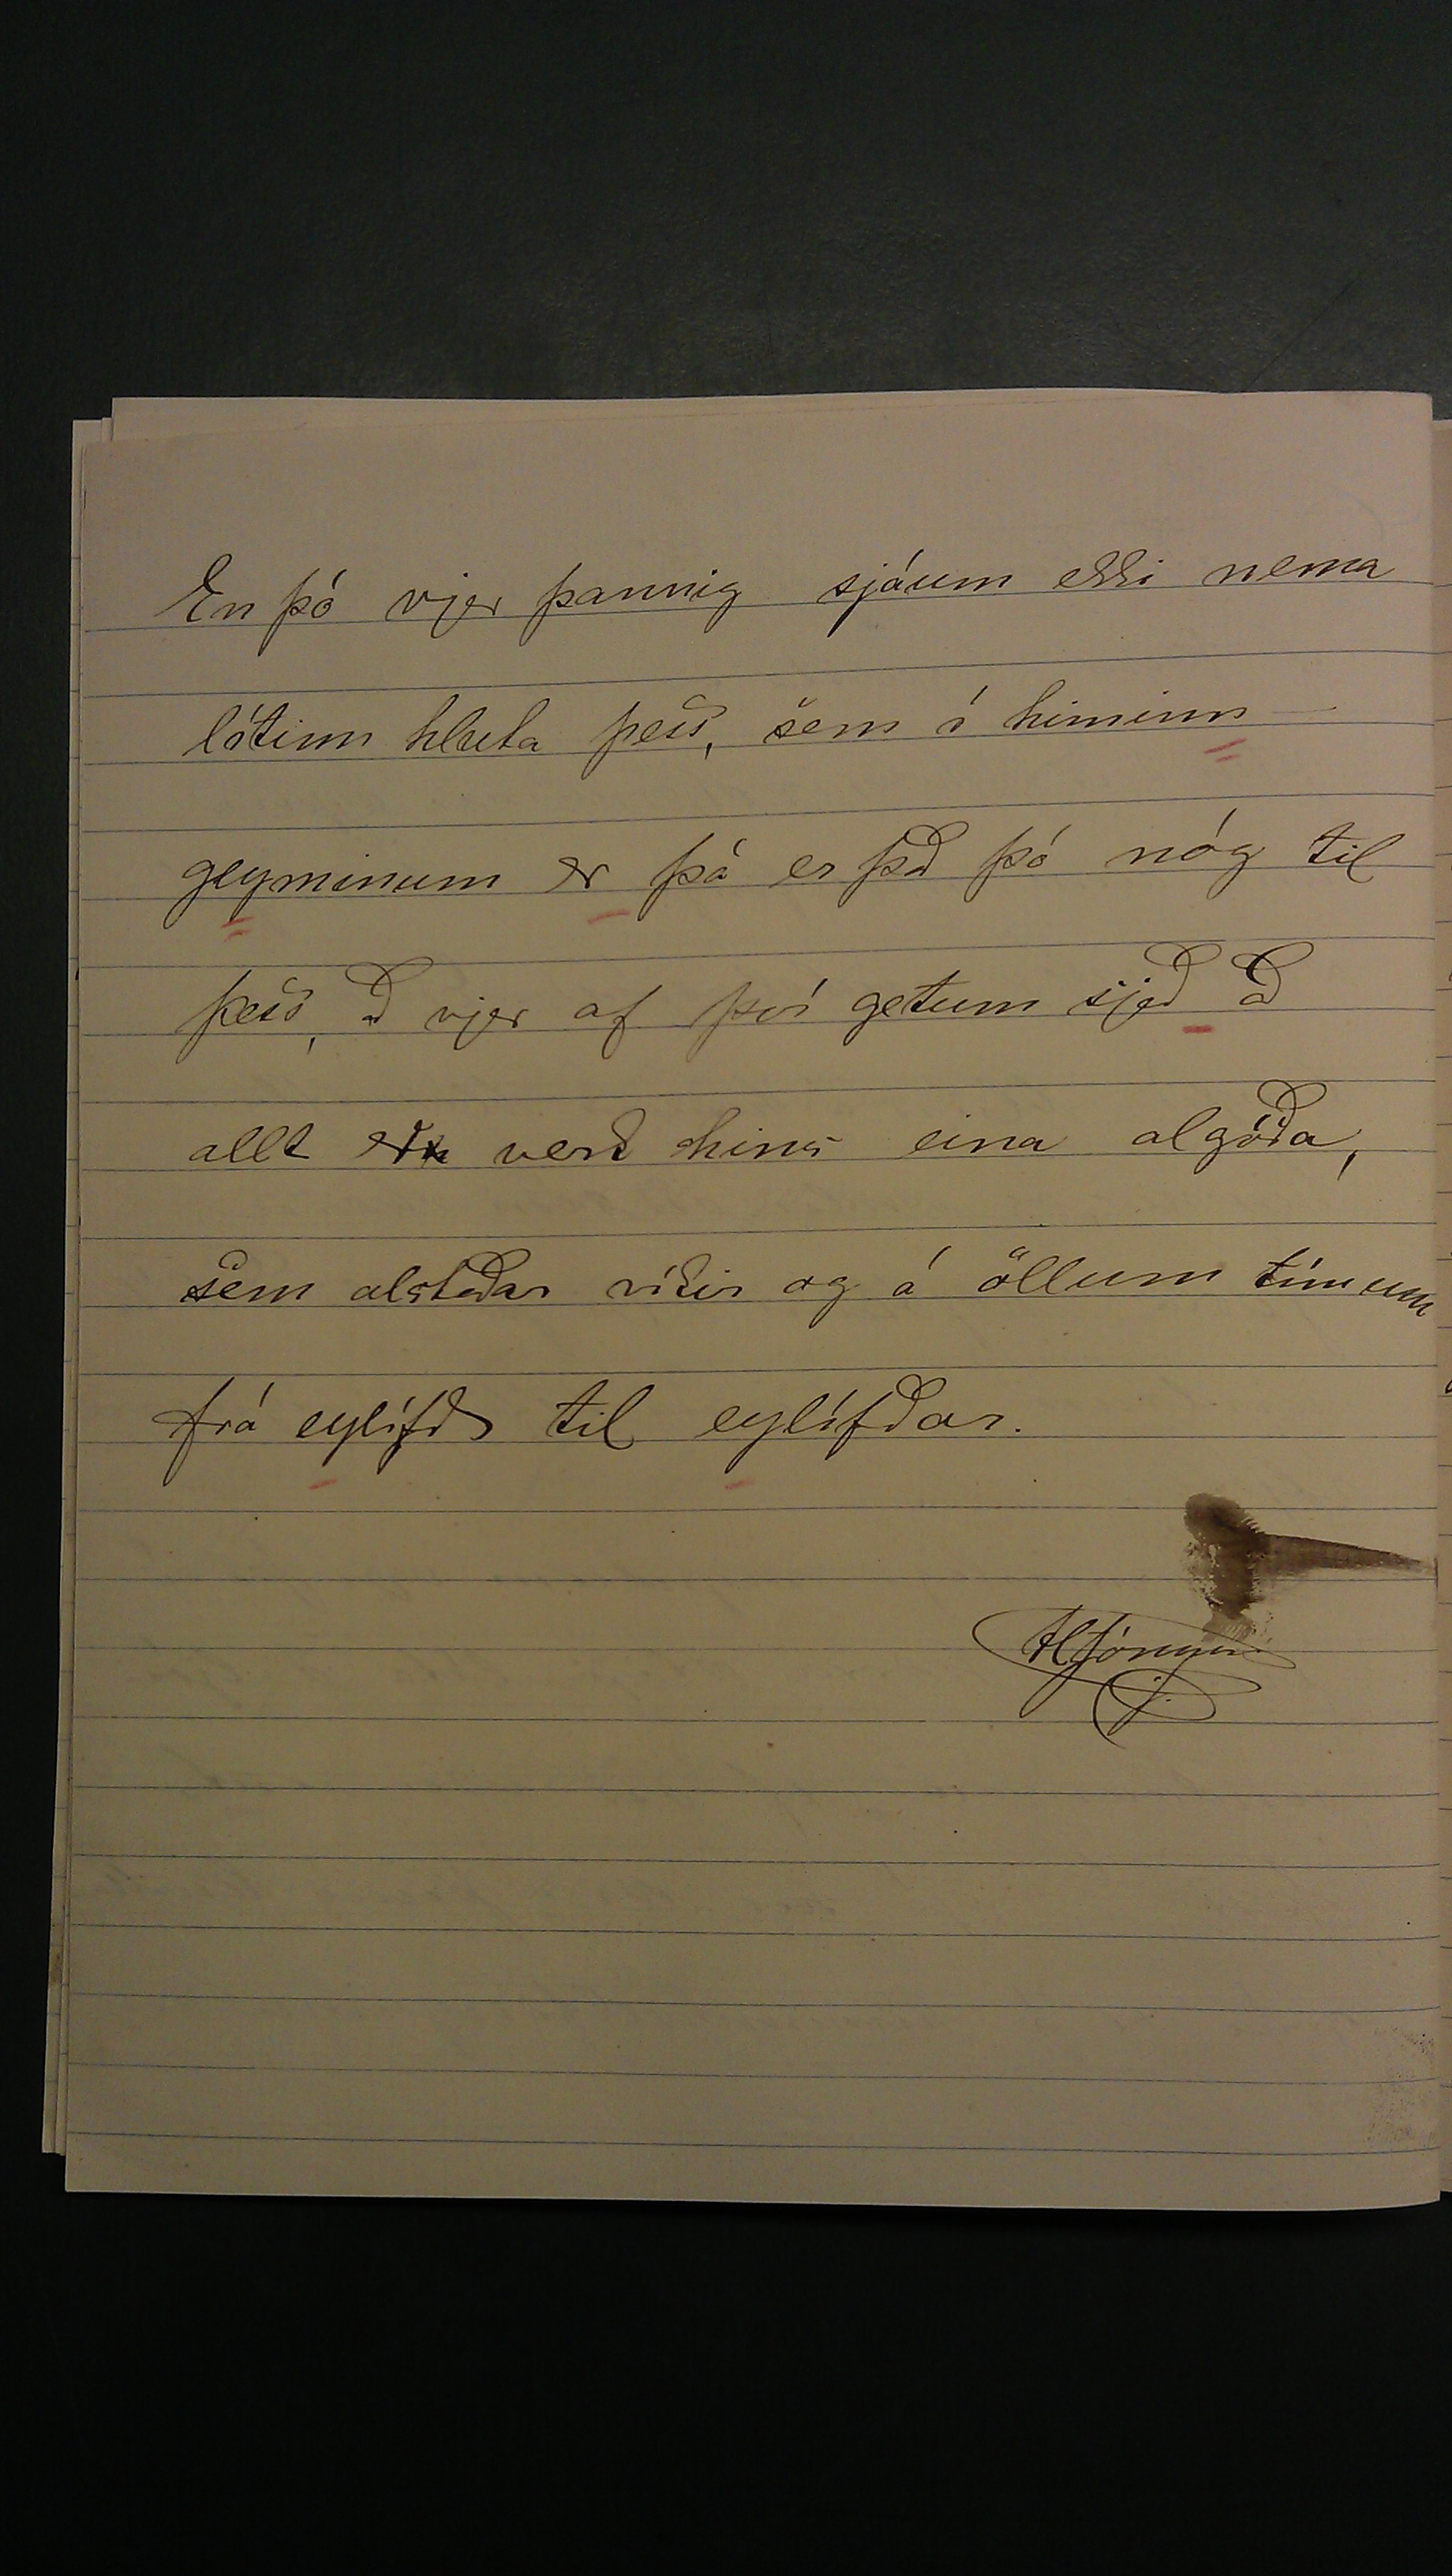 En þó vjer þannig sjáum ekki nema
lítinn hluta þess, sem í himinn
geyminum er þá er það þó nóg til
þess, að vjer af því getum sjeð að
allt er verk hins eina algóða,
sem alstaðar ríkir og á öllum tímum
frá eylífð til eylífðar.